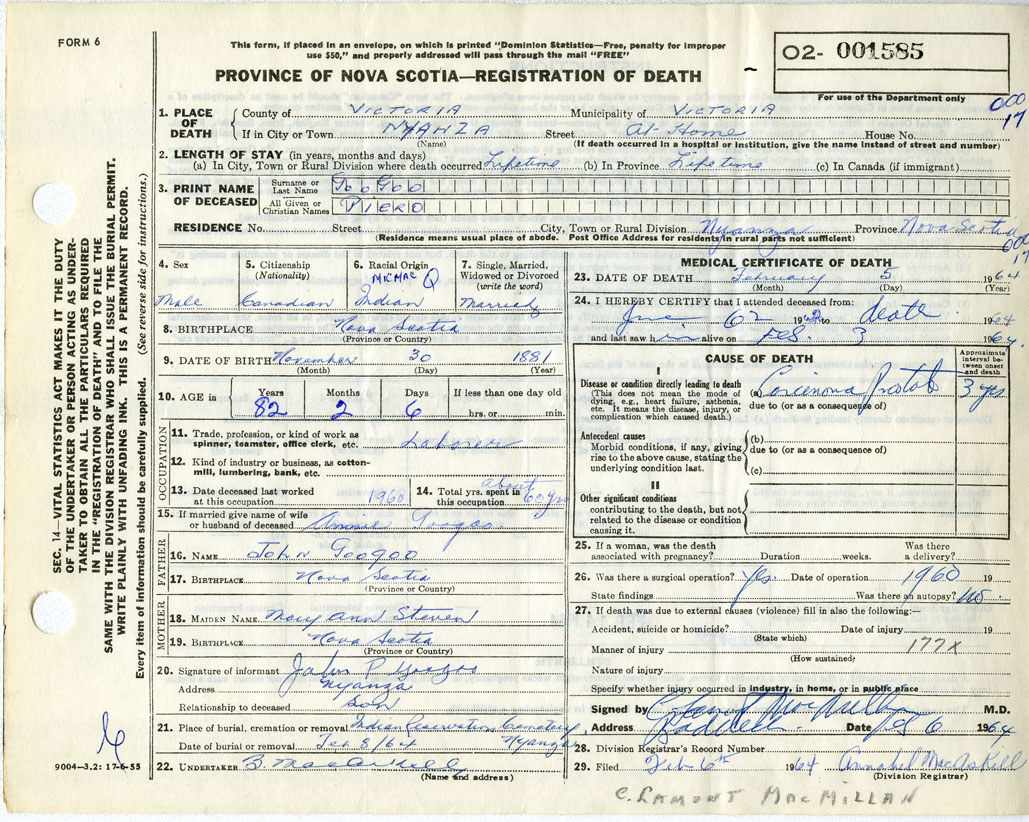 FORM 6
This form, if placed in an envelope, on which is printed "Dominion Statistics—Free, penalty for improper
use $50," and properly addressed will pass through the mail "FREE"
PROVINCE OF NOVA SCOTIA—REGISTRATION OF DEATH
O2- 001585
For use of the Department only
000
17
1. PLACE OF DEATH
County of VICTORIA Municipality of VICTORIA
If in City or Town NYANZA Street At Home House No.
(Name) (If death occurred in a hospital or institution, give the name instead of street and number)
2. LENGTH OF STAY (in years, months and days)
(a) In City, Town or Rural Division where death occurred Lifetime (b) In Province Lifetime (c) In Canada (if immigrant)
3. PRINT NAME OF DECEASED
Surname or Last Name GooGoo
All Given or Christian Names PIERO
RESIDENCE No. Street City, Town or Rural Division Nyanza Province Nova Scotia
(Residence means usual place of abode. Post Office Address for residents in rural parts not sufficient)
000
17
4. Sex
Male
5. Citizenship
(Nationality)
Canadian
6. Racial Origin
MICMAC
Indian
7. Single, Married,
Widowed or Divorced
(write the word)
Married
8. BIRTHPLACE Nova Scotia
(Province or Country)
9. DATE OF BIRTH November 30 1881
(Month) (Day) (Year)
10. AGE in
Years Months Days If less than one day old
82 2 6 hrs. or min.
OCCUPATION
11. Trade, profession, or kind of work as
spinner, teamster, office clerk, etc. Laborer
12. Kind of industry or business, as cotton-
mill, lumbering, bank, etc.
13. Date deceased last worked
at this occupation 1960
14. Total yrs. spent in
this occupation about 60 yrs
15. If married give name of wife
or husband of deceased Annie Googoo
FATHER
16. NAME John Googoo
17. BIRTHPLACE Nova Scotia
(Province or Country)
MOTHER
18. MAIDEN NAME Mary Ann Steven
19. BIRTHPLACE Nova Scotia
(Province or Country)
20. Signature of informant John P Googoo
Address Nyanza
Relationship to deceased Son
21. Place of burial, cremation or removal Indian Reservation Cemetery
Date of burial or removal Feb 8/64 Nyanza
22. UNDERTAKER
(Name and address)
MEDICAL CERTIFICATE OF DEATH
23. DATE OF DEATH February 5 1964
(Month) (Day) (Year)
24. I HEREBY CERTIFY that I attended deceased from:
62 1962 to death 1964
and last saw him alive on Feb. 3 1964.
CAUSE OF DEATH
Approximate
interval be-
tween onset
and death
I
Disease or condition directly leading to death
(This does not mean the mode of
dying, e.g., heart failure, asthenia,
etc. It means the disease, injury, or
complication which caused death.)
(a) 3 yrs
due to (or as a consequence of)
Antecedent causes
Morbid conditions, if any, giving
rise to the above cause, stating the
underlying condition last.
(b)
due to (or as a consequence of)
(c)
II
Other significant conditions
contributing to the death, but not
related to the disease or condition
causing it.
25. If a woman, was the death
associated with pregnancy? Duration weeks. Was there
a delivery?
26. Was there a surgical operation? Yes. Date of operation 1960 19
State findings Was there an autopsy? no.
27. If death was due to external causes (violence) fill in also the following:—
Accident, suicide or homicide? Date of injury 19
(State which)
Manner of injury 177X
(How sustained)
Nature of injury
Specify whether injury occurred in industry, in home, or in public place
Signed by C Lamont MacMillan M.D.
Address Baddeck Date Feb 6 1964
28. Division Registrar's Record Number
29. Filed Feb 6th 1964 Annabel MacAskill
(Division Registrar)
C. LAMONT MACMILLAN
SEC. 14—VITAL STATISTICS ACT MAKES IT THE DUTY
OF THE UNDERTAKER OR PERSON ACTING AS UNDER-
TAKER TO OBTAIN ALL THE PARTICULARS REQUIRED
IN THE "REGISTRATION OF DEATH" AND TO FILE THE
SAME WITH THE DIVISION REGISTRAR WHO SHALL ISSUE THE BURIAL PERMIT.
WRITE PLAINLY WITH UNFADING INK. THIS IS A PERMANENT RECORD.
Every item of information should be carefully supplied. (See reverse side for instructions.)
9004—3.2: 17-6-55